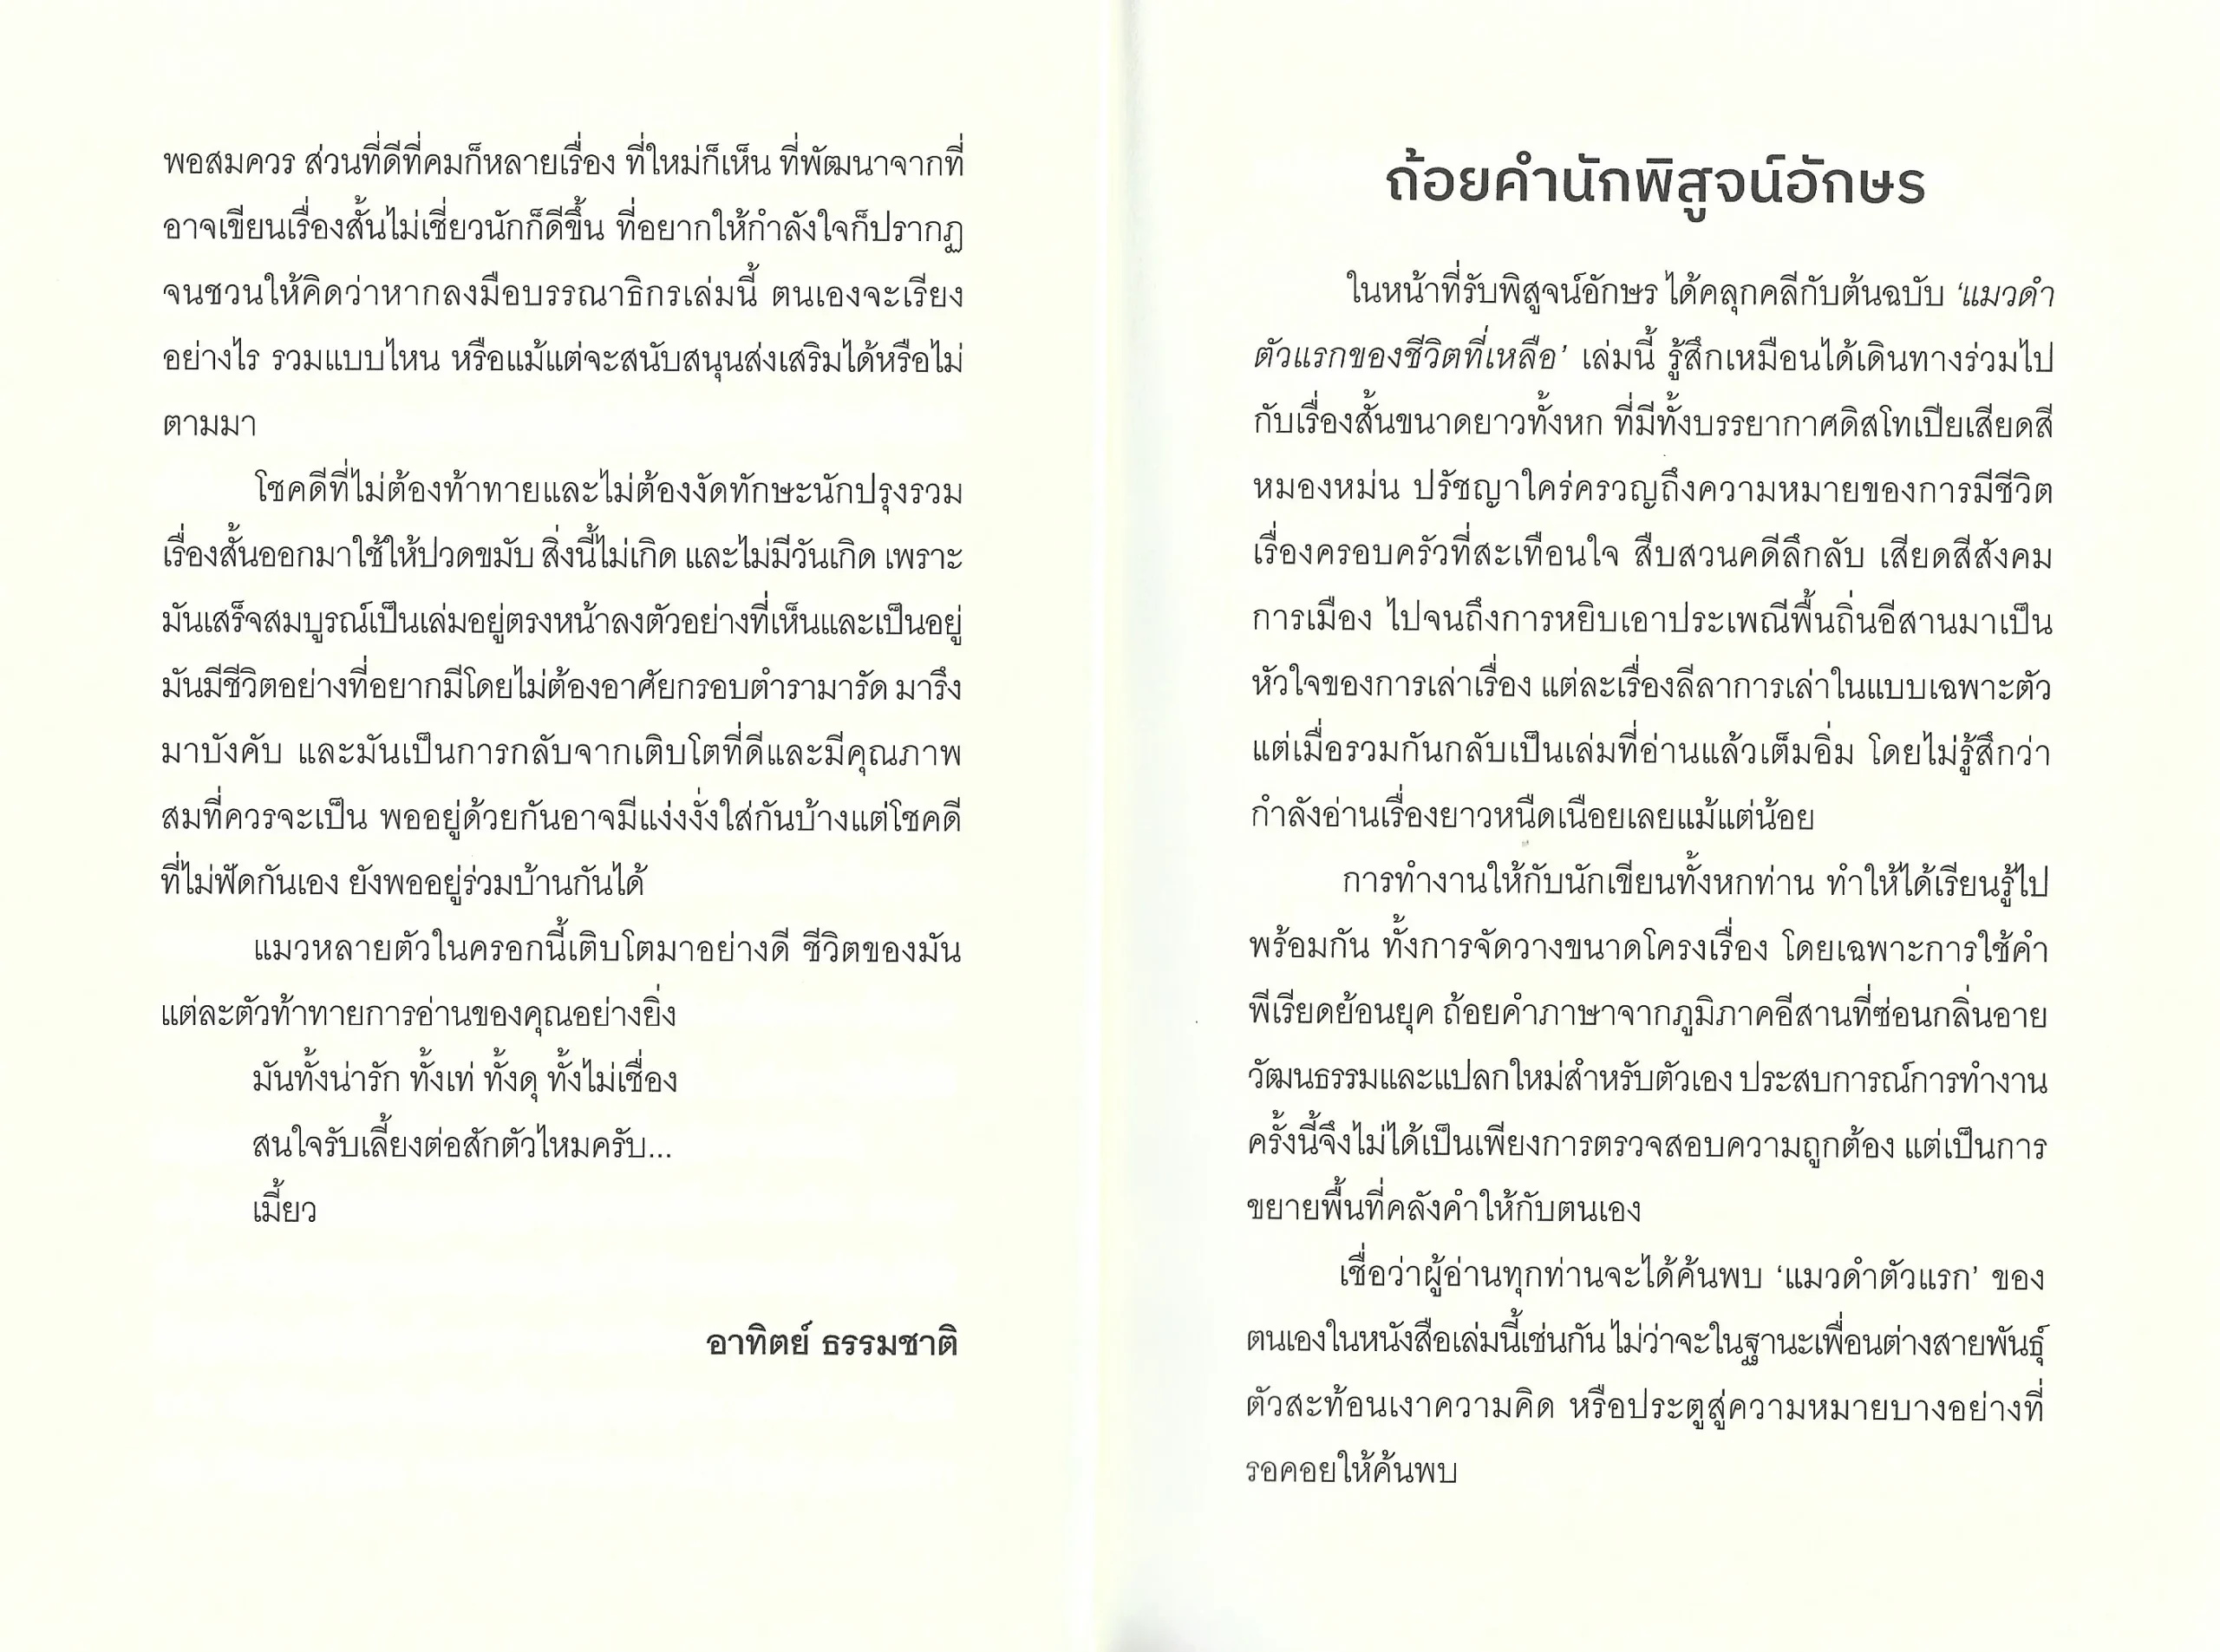 พอสมควร ส่วนที่ดีที่คมก็หลายเรื่อง ที่ใหม่ก็เห็น ที่พัฒนาจากที่
อาจเขียนเรื่องสั้นไม่เชี่ยวนักก็ดีขึ้น ที่อยากให้กำลังใจก็ปรากฏ
จนชวนให้คิดว่าหากลงมือบรรณาธิกรเล่มนี้ ตนเองจะเรียง
อย่างไร รวมแบบไหน หรือแม้แต่จะสนับสนุนส่งเสริมได้หรือไม่
ตามมา
โชคดีที่ไม่ต้องท้าทายและไม่ต้องงัดทักษะนักปรุงรวม
เรื่องสั้นออกมาใช้ให้ปวดขมับ สิ่งนี้ไม่เกิด และไม่มีวันเกิด เพราะ
มันเสร็จสมบูรณ์เป็นเล่มอยู่ตรงหน้าลงตัวอย่างที่เห็นและเป็นอยู่
มันมีชีวิตอย่างที่อยากมีโดยไม่ต้องอาศัยกรอบตำรามารัด มารึง
มาบังคับ และมันเป็นการกลับจากเติบโตที่ดีและมีคุณภาพ
สมที่ควรจะเป็น พออยู่ด้วยกันอาจมีแง่งงั่งใส่กันบ้างแต่โชคดี
ที่ไม่ฟัดกันเอง ยังพออยู่ร่วมบ้านกันได้
แมวหลายตัวในครอกนี้เติบโตมาอย่างดี ชีวิตของมัน
แต่ละตัวท้าทายการอ่านของคุณอย่างยิ่ง
มันทั้งน่ารัก ทั้งเท่ ทั้งดุ ทั้งไม่เชื่อง
สนใจรับเลี้ยงต่อสักตัวไหมครับ...
เมี้ยว
อาทิตย์ ธรรมชาติ
ถ้อยคำนักพิสูจน์อักษร
ในหน้าที่รับพิสูจน์อักษร ได้คลุกคลีกับต้นฉบับ ‘แมวดำ
ตัวแรกของชีวิตที่เหลือ’ เล่มนี้ รู้สึกเหมือนได้เดินทางร่วมไป
กับเรื่องสั้นขนาดยาวทั้งหก ที่มีทั้งบรรยากาศดิสโทเปียเสียดสี
หมองหม่น ปรัชญาใคร่ครวญถึงความหมายของการมีชีวิต
เรื่องครอบครัวที่สะเทือนใจ สืบสวนคดีลึกลับ เสียดสีสังคม
การเมือง ไปจนถึงการหยิบเอาประเพณีพื้นถิ่นอีสานมาเป็น
หัวใจของการเล่าเรื่อง แต่ละเรื่องลีลาการเล่าในแบบเฉพาะตัว
แต่เมื่อรวมกันกลับเป็นเล่มที่อ่านแล้วเต็มอิ่ม โดยไม่รู้สึกว่า
กำลังอ่านเรื่องยาวหนืดเนือยเลยแม้แต่น้อย
การทำงานให้กับนักเขียนทั้งหกท่าน ทำให้ได้เรียนรู้ไป
พร้อมกัน ทั้งการจัดวางขนาดโครงเรื่อง โดยเฉพาะการใช้คำ
พีเรียดย้อนยุค ถ้อยคำภาษาจากภูมิภาคอีสานที่ซ่อนกลิ่นอาย
วัฒนธรรมและแปลกใหม่สำหรับตัวเอง ประสบการณ์การทำงาน
ครั้งนี้จึงไม่ได้เป็นเพียงการตรวจสอบความถูกต้อง แต่เป็นการ
ขยายพื้นที่คลังคำให้กับตนเอง
เชื่อว่าผู้อ่านทุกท่านจะได้ค้นพบ ‘แมวดำตัวแรก’ ของ
ตนเองในหนังสือเล่มนี้เช่นกัน ไม่ว่าจะในฐานะเพื่อนต่างสายพันธุ์
ตัวสะท้อนเงาความคิด หรือประตูสู่ความหมายบางอย่างที่
รอคอยให้ค้นพบ